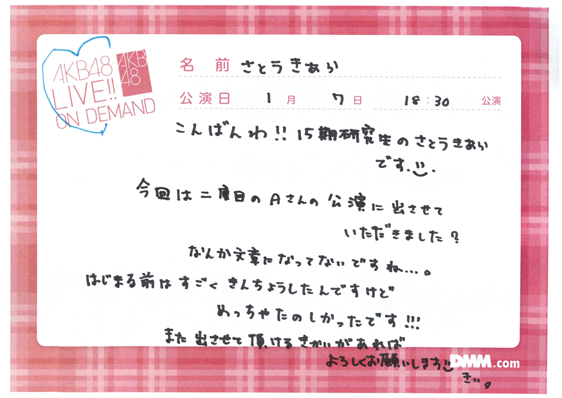 AKB48
LIVE!!
ON DEMAND
AKB
48
名 前 さとうきあら
公演日 1 月 7 日 18:30 公演
こんばんわ!! 15期研究生のさとうきあら
です.
今回は二度目のAさんの公演に出させて
いただきました?
なんか文章になってないですね…。
はじまる前はすごくきんちょうしたんですけど
めっちゃたのしかったです!!!
また出させて頂けるきかいがあれば
よろしくお願いします
DMM.com